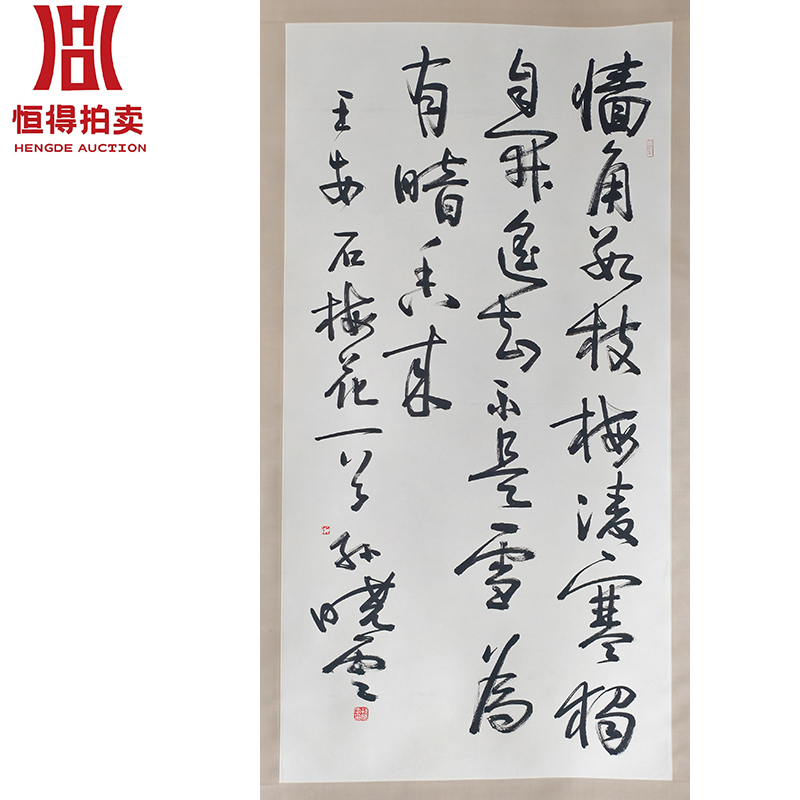 恒得拍卖
HENGDE AUCTION
墙角數枝梅凌寒獨
自開遥知不是雪為
有暗香来
王安石梅花一首 孙曉雲